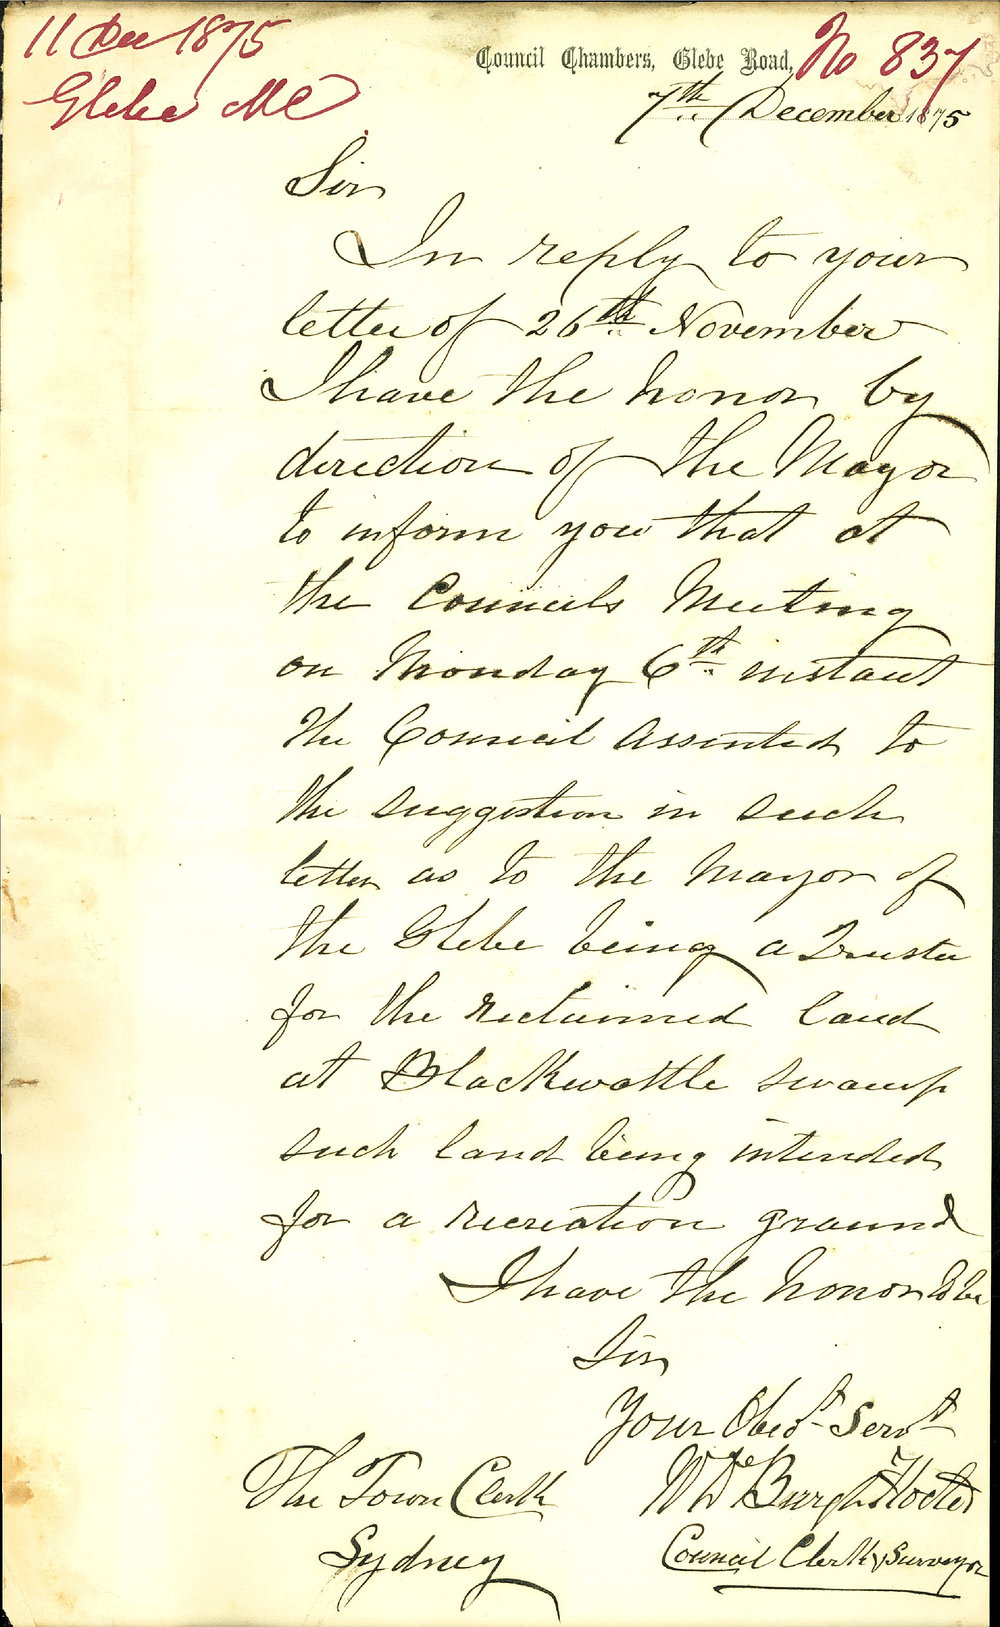 11 Dec 1875
Glebe MC
Council Chambers, Glebe Road,
No 837
7th December 1875
Sir
In reply to your
letter of 26th November
I have the honor by
direction of the Mayor
to inform you that at
the Councils Meeting
on Monday 6th instant
the Council assented to
the suggestion in such
letter as to the Mayor of
the Glebe being a Trustee
for the reclaimed land
at Blackwattle swamp
such land being intended
for a recreation ground
I have the honor to be
Sir
Your Obedt Servt
W De Burgh Hocter
Council Clerk & Surveyor
The Town Clerk
Sydney